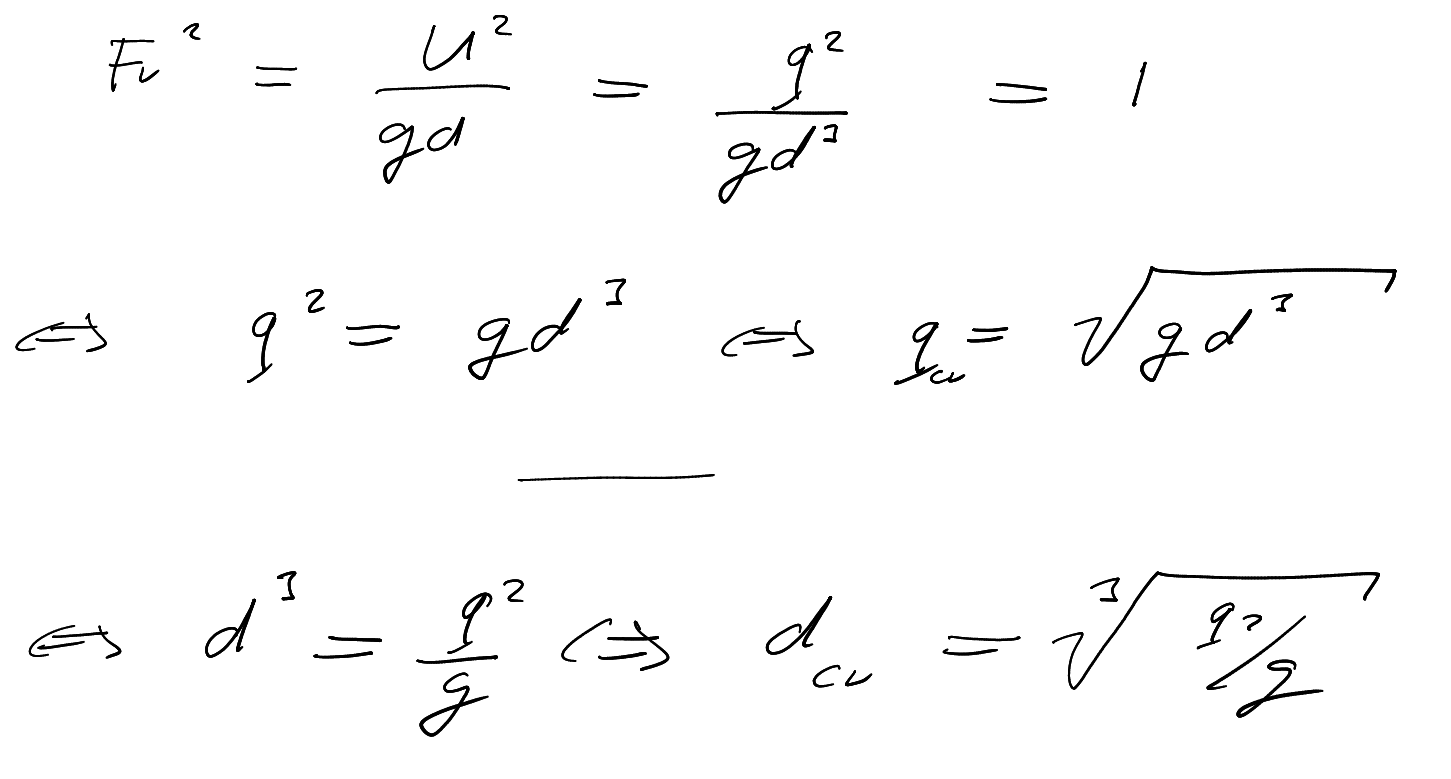 Fr² = U²/gd = q²/gd³ = 1
⇔ q² = gd³ ⇔ q_cr = √(gd³)
⇔ d³ = q²/g ⇔ d_cr = ³√(q²/g)